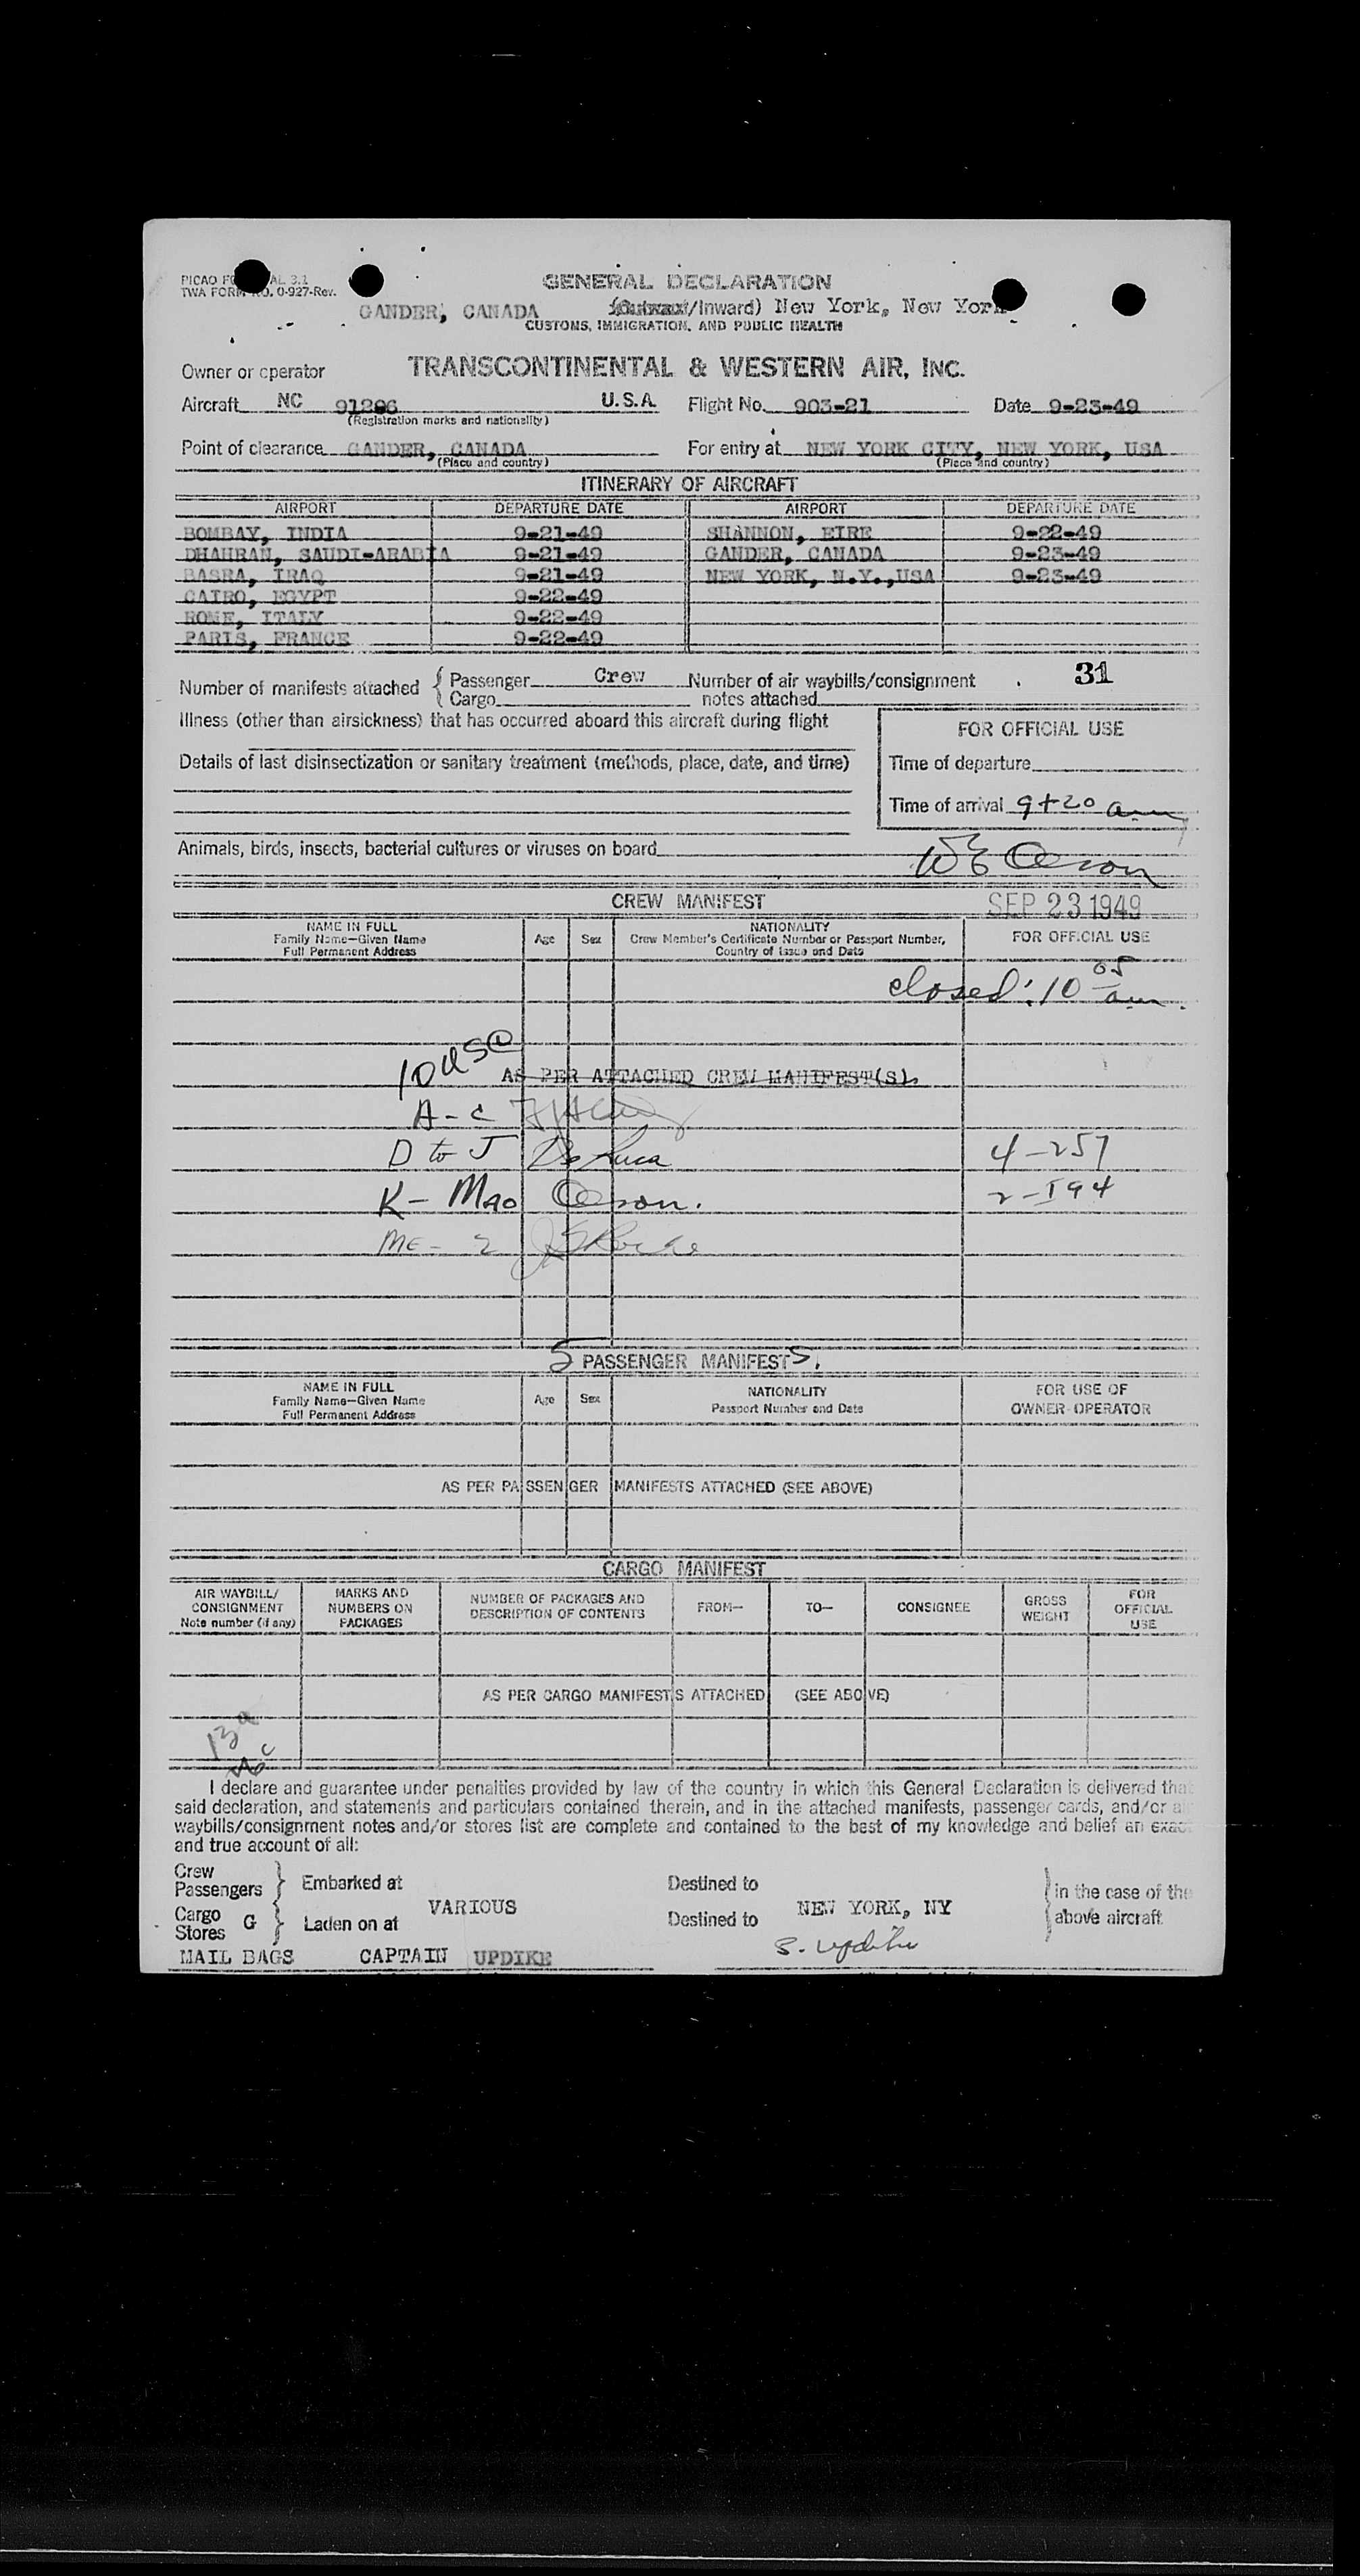 GENERAL DECLARATION
TWA FORM NO. 0-927-Rev.
GANDER, CANADA (Outward/Inward) New York, New York
CUSTOMS, IMMIGRATION, AND PUBLIC HEALTH
Owner or operator TRANSCONTINENTAL & WESTERN AIR, INC.
Aircraft NC U.S.A. Flight No. 903-21 Date 9-23-49
(Registration marks and nationality)
Point of clearance GANDER, CANADA For entry at NEW YORK CITY, NEW YORK, USA
(Place and country) (Place and country)
ITINERARY OF AIRCRAFT
AIRPORT DEPARTURE DATE AIRPORT DEPARTURE DATE
BOMBAY, INDIA 9-21-49 SHANNON, EIRE 9-22-49
DHAHRAN, SAUDI-ARABIA 9-21-49 GANDER, CANADA 9-23-49
BASRA, IRAQ 9-21-49 NEW YORK, N.Y.,USA 9-23-49
CAIRO, EGYPT 9-22-49
ROME, ITALY 9-22-49
PARIS, FRANCE 9-22-49
Number of manifests attached { Passenger Crew Number of air waybills/consignment 31
Cargo notes attached
Illness (other than airsickness) that has occurred aboard this aircraft during flight
FOR OFFICIAL USE
Details of last disinsectization or sanitary treatment (methods, place, date, and time)
Time of departure
Time of arrival 9+20 am
Animals, birds, insects, bacterial cultures or viruses on board
CREW MANIFEST
SEP 23 1949
NAME IN FULL Age Sex NATIONALITY FOR OFFICIAL USE
Family Name—Given Name Crew Member's Certificate Number or Passport Number,
Full Permanent Address Country of Issue and Date
closed: 10 05 am.
10 USC
AS PER ATTACHED CREW MANIFEST(S).
A - C
D to J De Luca 4-257
K - Mao 2-194
Mc - Z
5 PASSENGER MANIFESTS.
NAME IN FULL Age Sex NATIONALITY FOR USE OF
Family Name—Given Name Passport Number and Date OWNER-OPERATOR
Full Permanent Address
AS PER PASSENGER MANIFESTS ATTACHED (SEE ABOVE)
CARGO MANIFEST
AIR WAYBILL/ MARKS AND NUMBER OF PACKAGES AND FROM— TO— CONSIGNEE GROSS FOR
CONSIGNMENT NUMBERS ON DESCRIPTION OF CONTENTS WEIGHT OFFICIAL
Note number (if any) PACKAGES USE
AS PER CARGO MANIFESTS ATTACHED (SEE ABOVE)
I declare and guarantee under penalties provided by law of the country in which this General Declaration is delivered that
said declaration, and statements and particulars contained therein, and in the attached manifests, passenger cards, and/or
waybills/consignment notes and/or stores list are complete and contained to the best of my knowledge and belief an exact
and true account of all:
Crew
Passengers } Embarked at Destined to } in the case of the
VARIOUS NEW YORK, NY
Cargo
Stores G } Laden on at Destined to } above aircraft
S. Updike
MAIL BAGS CAPTAIN UPDIKE